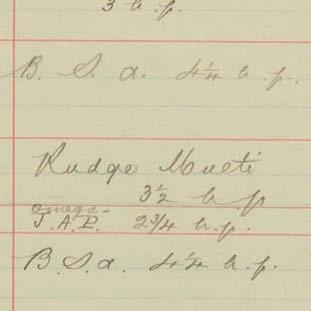 3 h.p.
B. S. a. 4¼ h.p.
Rudge Multi
3½ h p
Omega-
J.A.P. 2¾ h.p.
B.S.a. 4¼ h.p.